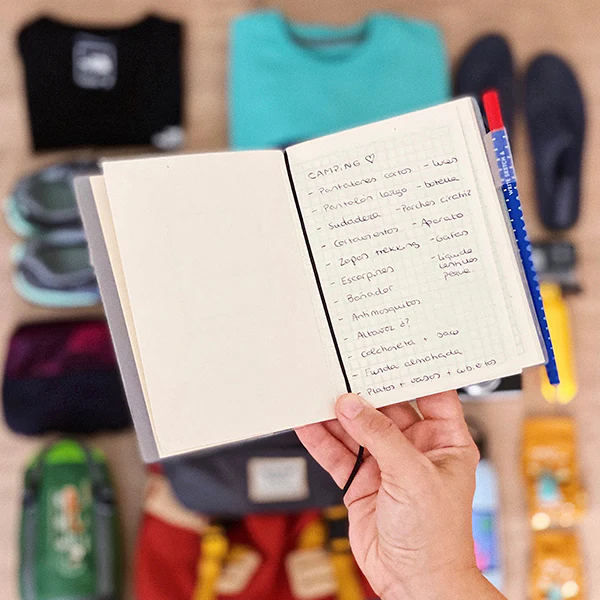 CAMPING ♡
- Pantalones cortos
- Pantalón largo
- Sudadera
- Cortavientos
- Zapas trekking
- Escarpines
- Bañador
- Antimosquitos
- Altavoz ¿?
- Colchoneta + saco
- Funda almohada
- Platos + vasos + cubiertos
- Luces
- botella
- Parches cicatriz
- Aparato
- Gafas
- Líquido
lentillas
peque